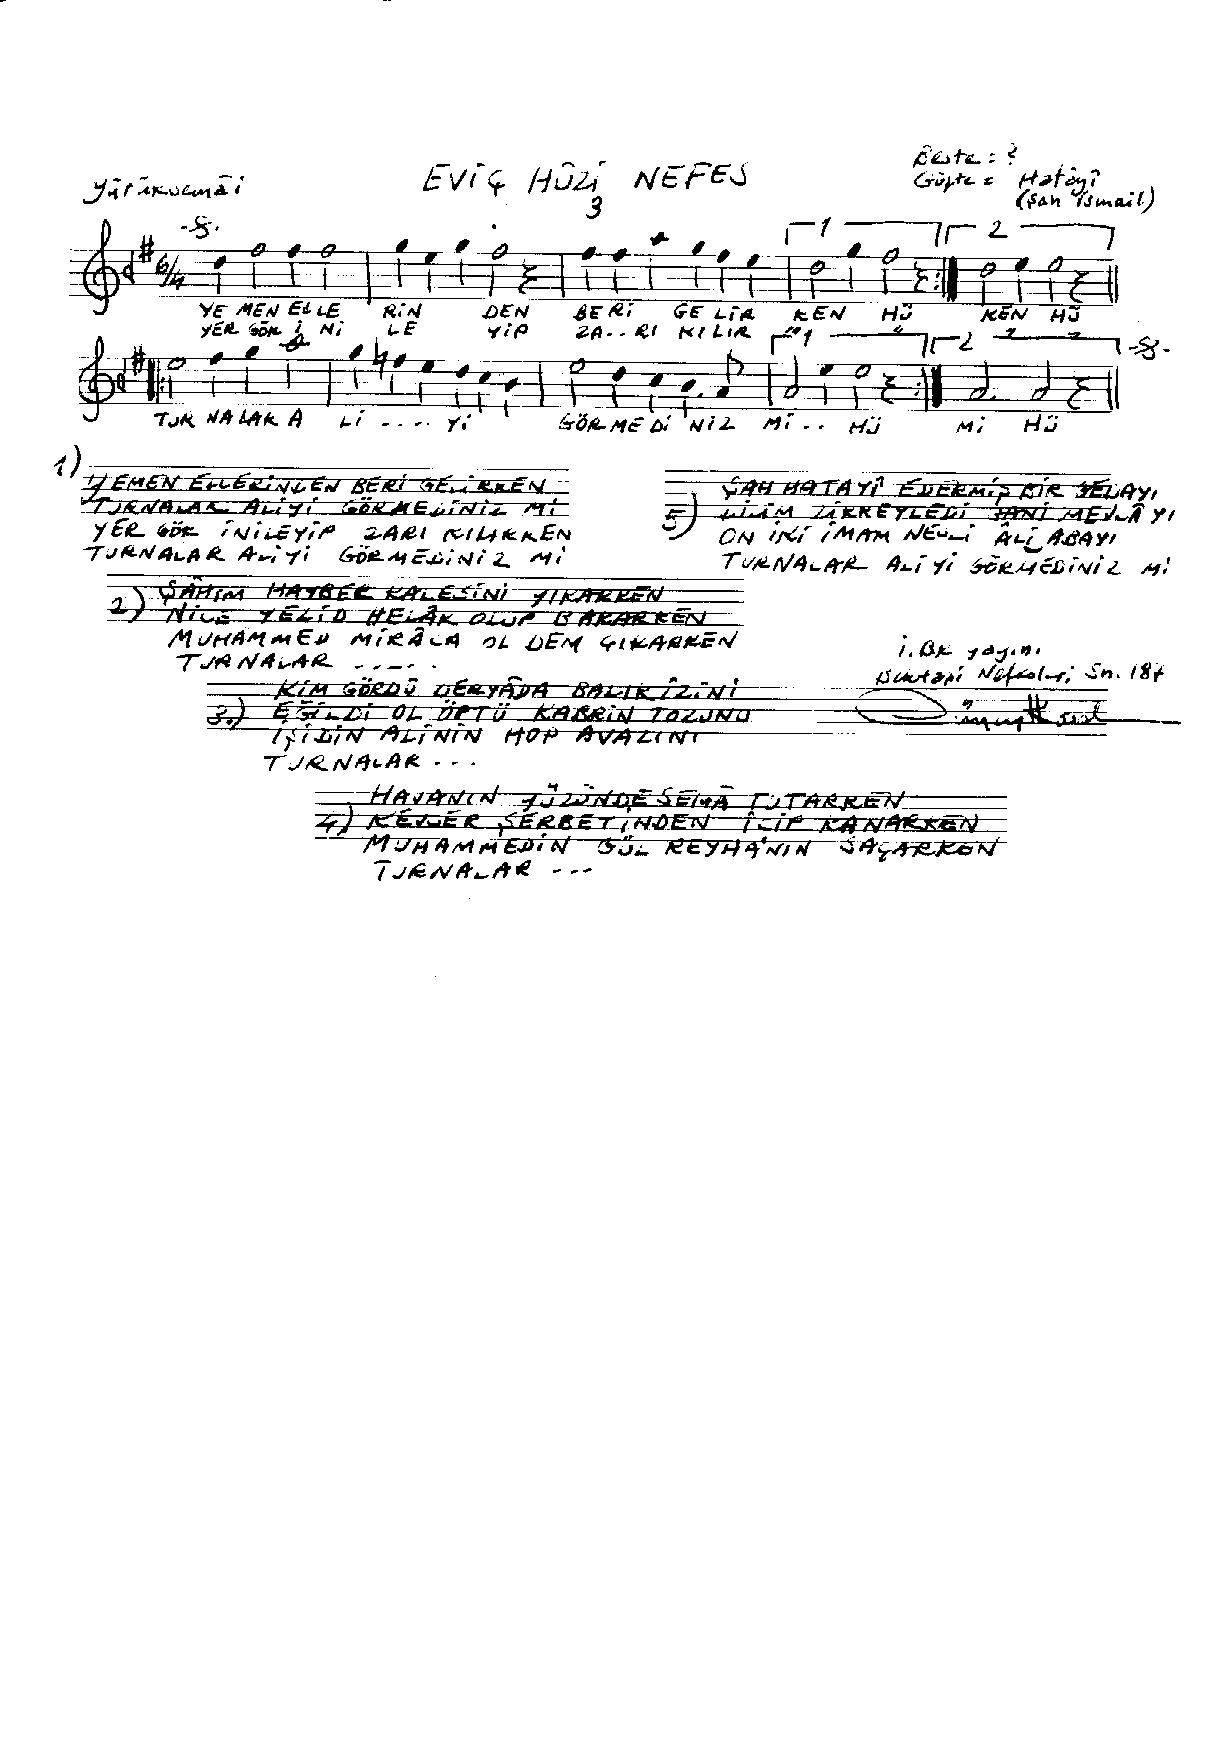 Yürüksemâi
EVİÇ HÛZİ NEFES
3
Beste = ?
Güfte = Hatâyî
(Şah İsmail)
6/4
1 2
YE MEN ELLE RİN DEN BERİ GELİR KEN HÜ KEN HÜ
YER GÖK İ Nİ LE YİP ZA..RI KILIR " "
1 2
TUR NALAR A Lİ .... Yİ GÖRMEDİ NİZ Mİ.. HÜ Mİ HÜ
1)
YEMEN ELLERİNDEN BERİ GELİRKEN
TURNALAR ALİYİ GÖRMEDİNİZ Mİ
YER GÖK İNİLEYİP ZARI KILIRKEN
TURNALAR ALİYİ GÖRMEDİNİZ Mİ
2) ŞÂHIM HAYBER KALESİNİ YIKARKEN
NİCE YEZİD HELÂK OLUP BAKARKEN
MUHAMMED MİRÂCA OL DEM ÇIKARKEN
TURNALAR .....
3.) KİM GÖRDÜ DERYÂDA BALIK İZİNİ
EĞİLDİ OL ÖPTÜ KABRİN TOZUNU
İŞİDİN ALİNİN HOP AVAZINI
TURNALAR ...
4) HAVANIN YÜZÜNDE SEMÂ TUTARKEN
KEVSER ŞERBETİNDEN İÇİP KANARKEN
MUHAMMEDİN GÜL REYHA'NIN SAÇARKEN
TURNALAR ---
5) ŞAH HATAYÎ EDERMİŞ BİR
DİLİM ZİKREYLEDİ GANİ MEVLÂYI
ON İKİ İMAM NESLİ ÂLİ ABAYI
TURNALAR ALİYİ GÖRMEDİNİZ Mİ
İ. BK yayını
Bektaşi Nefesleri Sh. 187